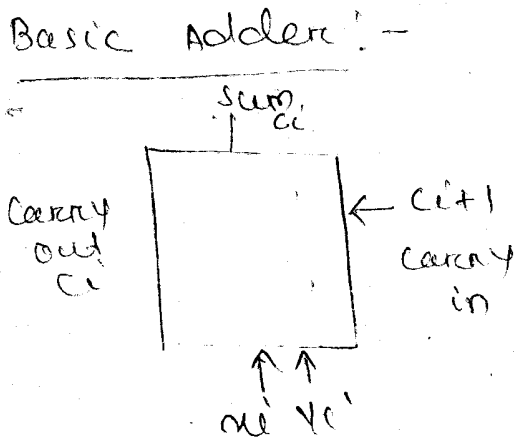 Basic Adder :-
Sum
ci
Carry
out
Ci
← Ci+1
Carry
in
↑ ↑
xi yi